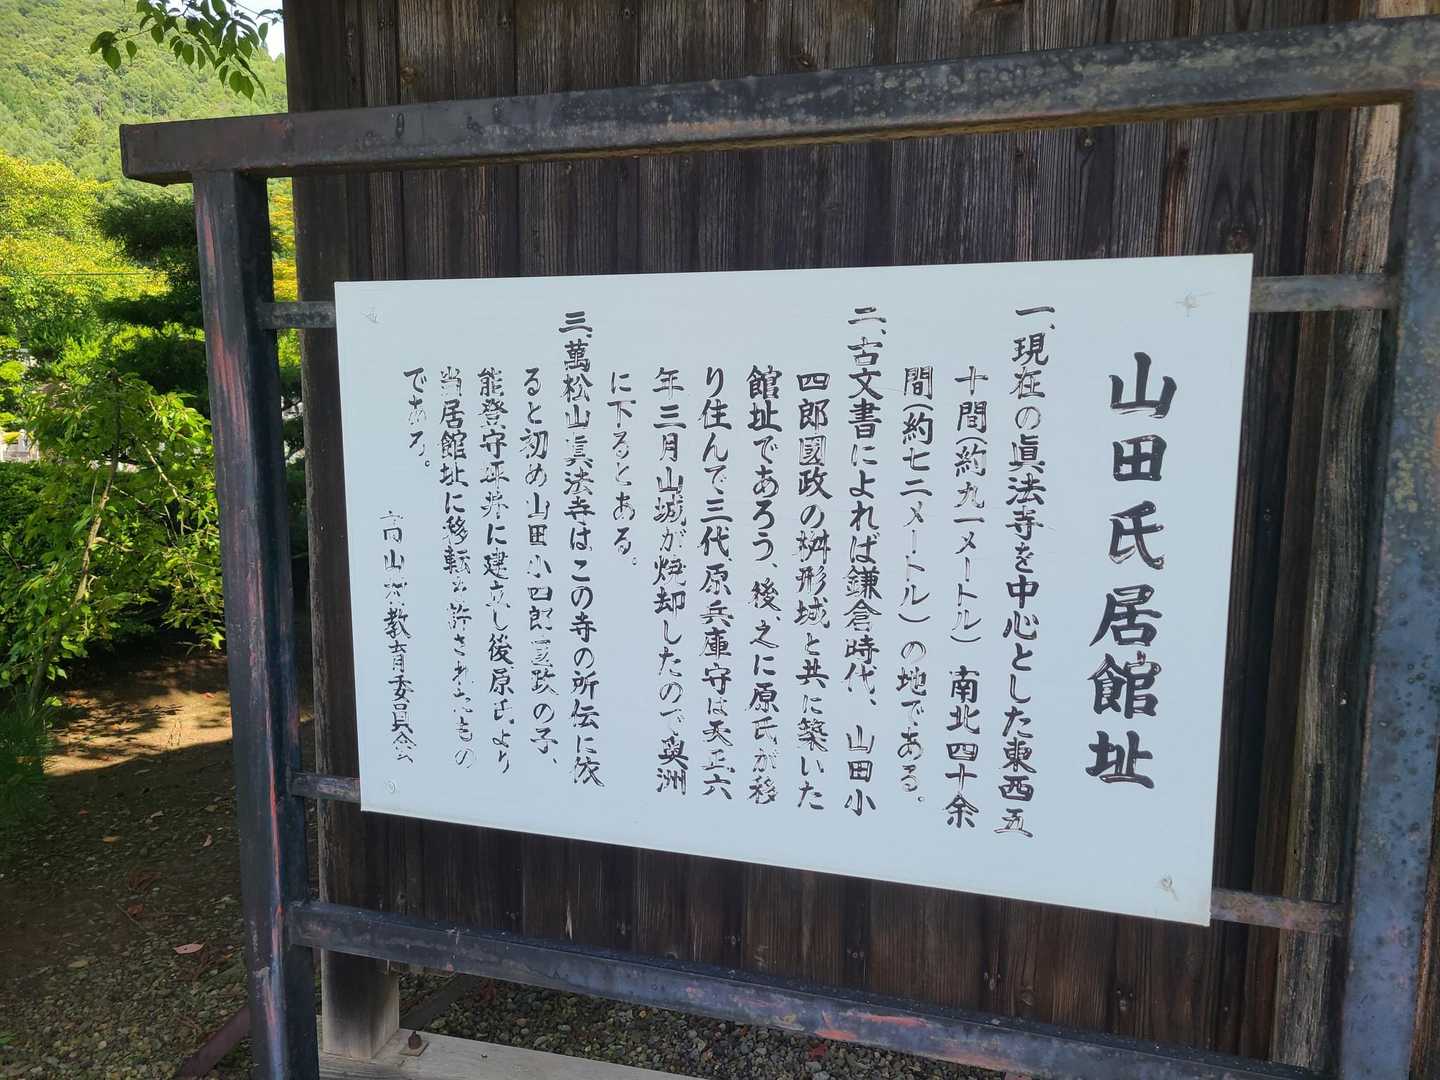 山田氏居館址
一、現在の眞法寺を中心とした東西五
十間(約九一メートル) 南北四十余
間(約七二メートル)の地である。
二、古文書によれば鎌倉時代、山田小
四郎國政の桝形城と共に築いた
館址であろう、後、之に原氏が移
り住んで三代原兵庫守は天正六
年三月山城が焼却したので奥洲
に下るとある。
三、萬松山眞法寺は、この寺の所伝に依
ると初め山田小四郎国政の子、
能登守 に建立し後原氏より
当居館址に移転を許されたもの
であろ。
高山村教育委員会